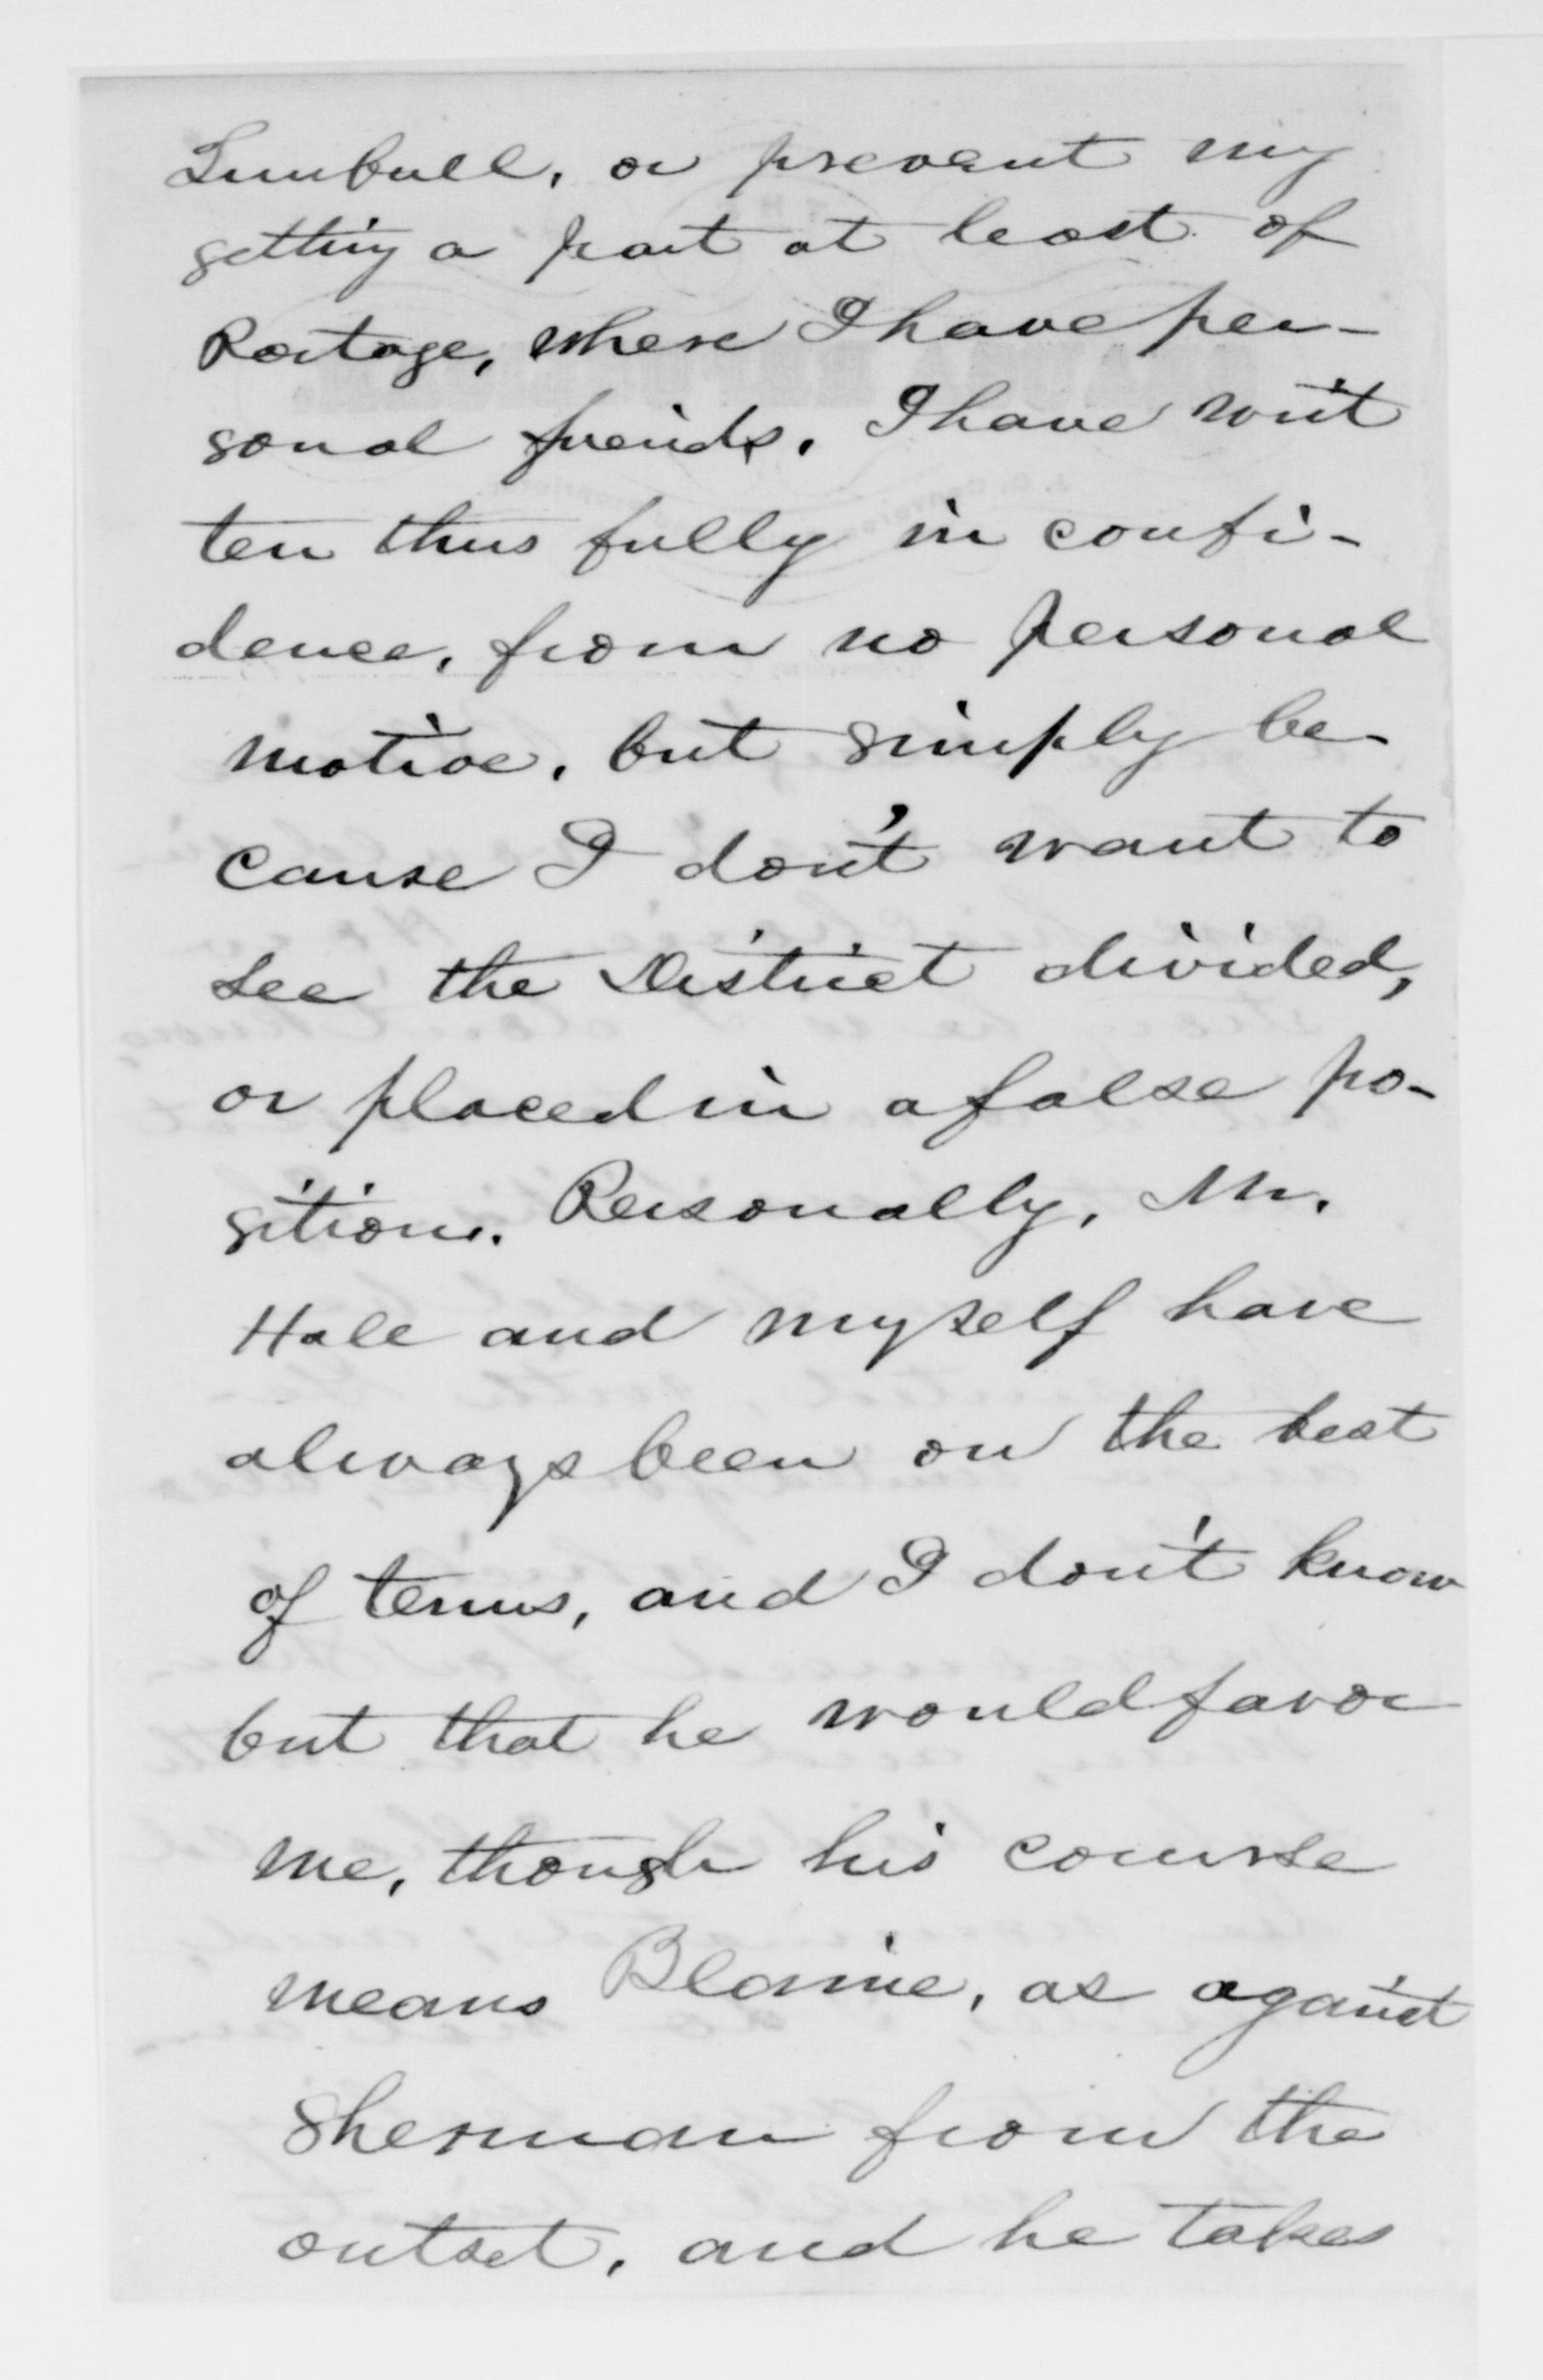 Trumbull, or prevent my
getting a part at least of
Portage, where I have per-
sonal friends. I have writ
ten thus fully in confi-
dence, from no personal
motive, but simply be-
cause I don't want to
see the District divided,
or placed in a false po-
sition. Personally, Mr.
Hale and myself have
always been on the best
of terms, and I don't know
but that he would favor
me, though his course
means Blaine, as against
Sherman from the
outset, and he takes